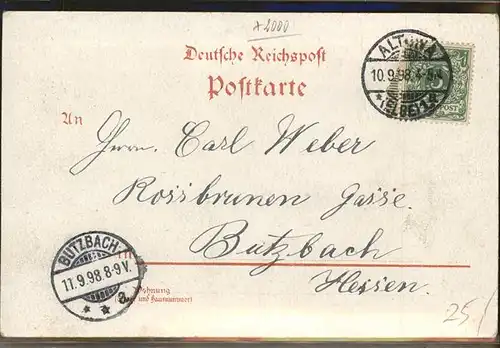 x 2000
Deutsche Reichspost
Postkarte
ALTONA
10.9.98.4-5
* (ELBE) 1 *
5
POST
An
Herrn Carl Weber
Rossbrunnen Gasse.
Butzbach
in
Hessen.
BUTZBACH
11.9.98.8-9V.
* * a
Wohnung
(Straße und Hausnummer)
25,